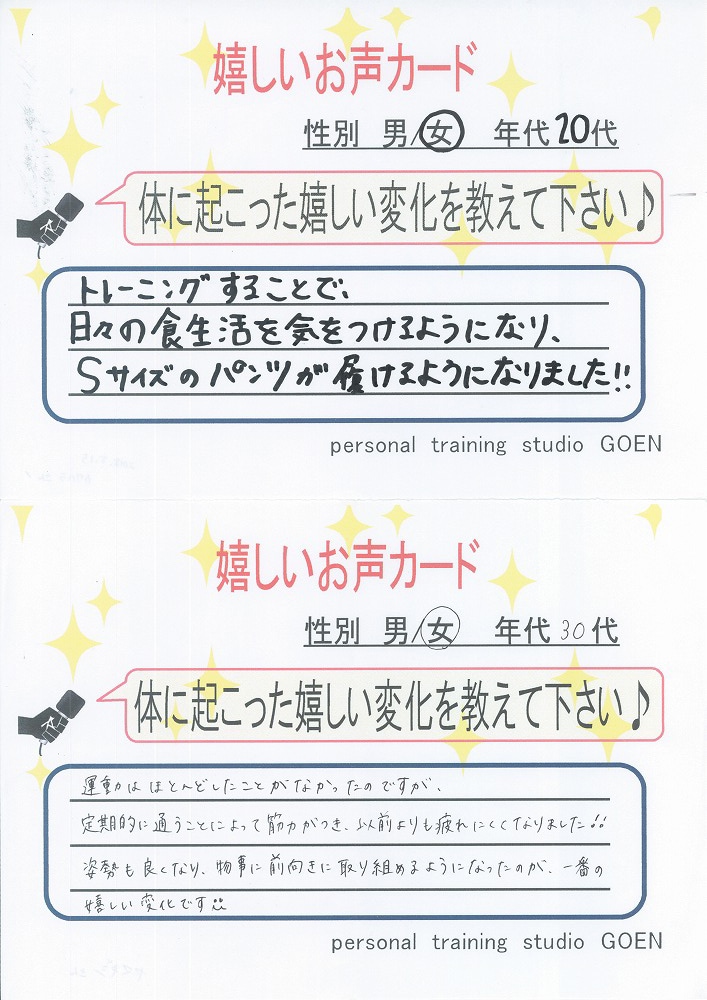 嬉しいお声カード
性別 男/女 年代20代
体に起こった嬉しい変化を教えて下さい♪
トレーニングすることで、
日々の食生活を気をつけるようになり、
Sサイズのパンツが履けるようになりました!!
personal training studio GOEN
嬉しいお声カード
性別 男/女 年代30代
体に起こった嬉しい変化を教えて下さい♪
運動はほとんどしたことがなかったのですが、
定期的に通うことによって筋力がつき、以前よりも疲れにくくなりました!!
姿勢も良くなり、物事に前向きに取り組めるようになったのが、一番の
嬉しい変化です
personal training studio GOEN